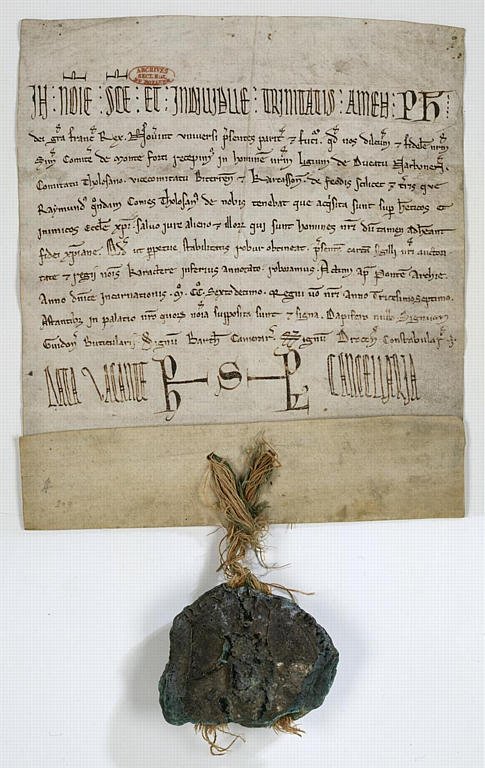 ARCHIVES
SECT. HIST.
DU ROYAUME
IN : NOIE : SCE : ET : INDIVIDUE : TRINITATIS : AMEN : PH
dei gra franc Rex. Noverint universi psentes parit & futi. qd nos dilctum & fidelem nrm
Sim Comite de Monte forti recepim in homine nrm ligium de Ducatu Narbonens
Comitatu Tholosano. vicecomitatu Biterren & Karcasson. de feodis scilicet & tris que
Raymund qondam Comes Tholosan de nobis tenebat que acqisita sunt sup hereticos et
inimicos Ecclie xpi. salvo iure alieno & illor qui sunt homines nri dutamen adheant
fidei xpiane. Qd ut perpetue stabilitatis robur obtineat. psentem cartam sigilli nri auctori
tate & regii nois karactere inferius annotato. roboramus. Actum ap Ponte Archie
Anno dnice incarnationis. M. CC. Sextodecimo. Regni vo nri Anno Tricesimoseptimo.
Astantibus in palatio nro quor noia supposita sunt & signa. Dapifero nullo. Signum
Guidon Buticularii. Signum Barth Camerar. Signum Drocon Constabular
DATA VACANTE CANCELLARIA